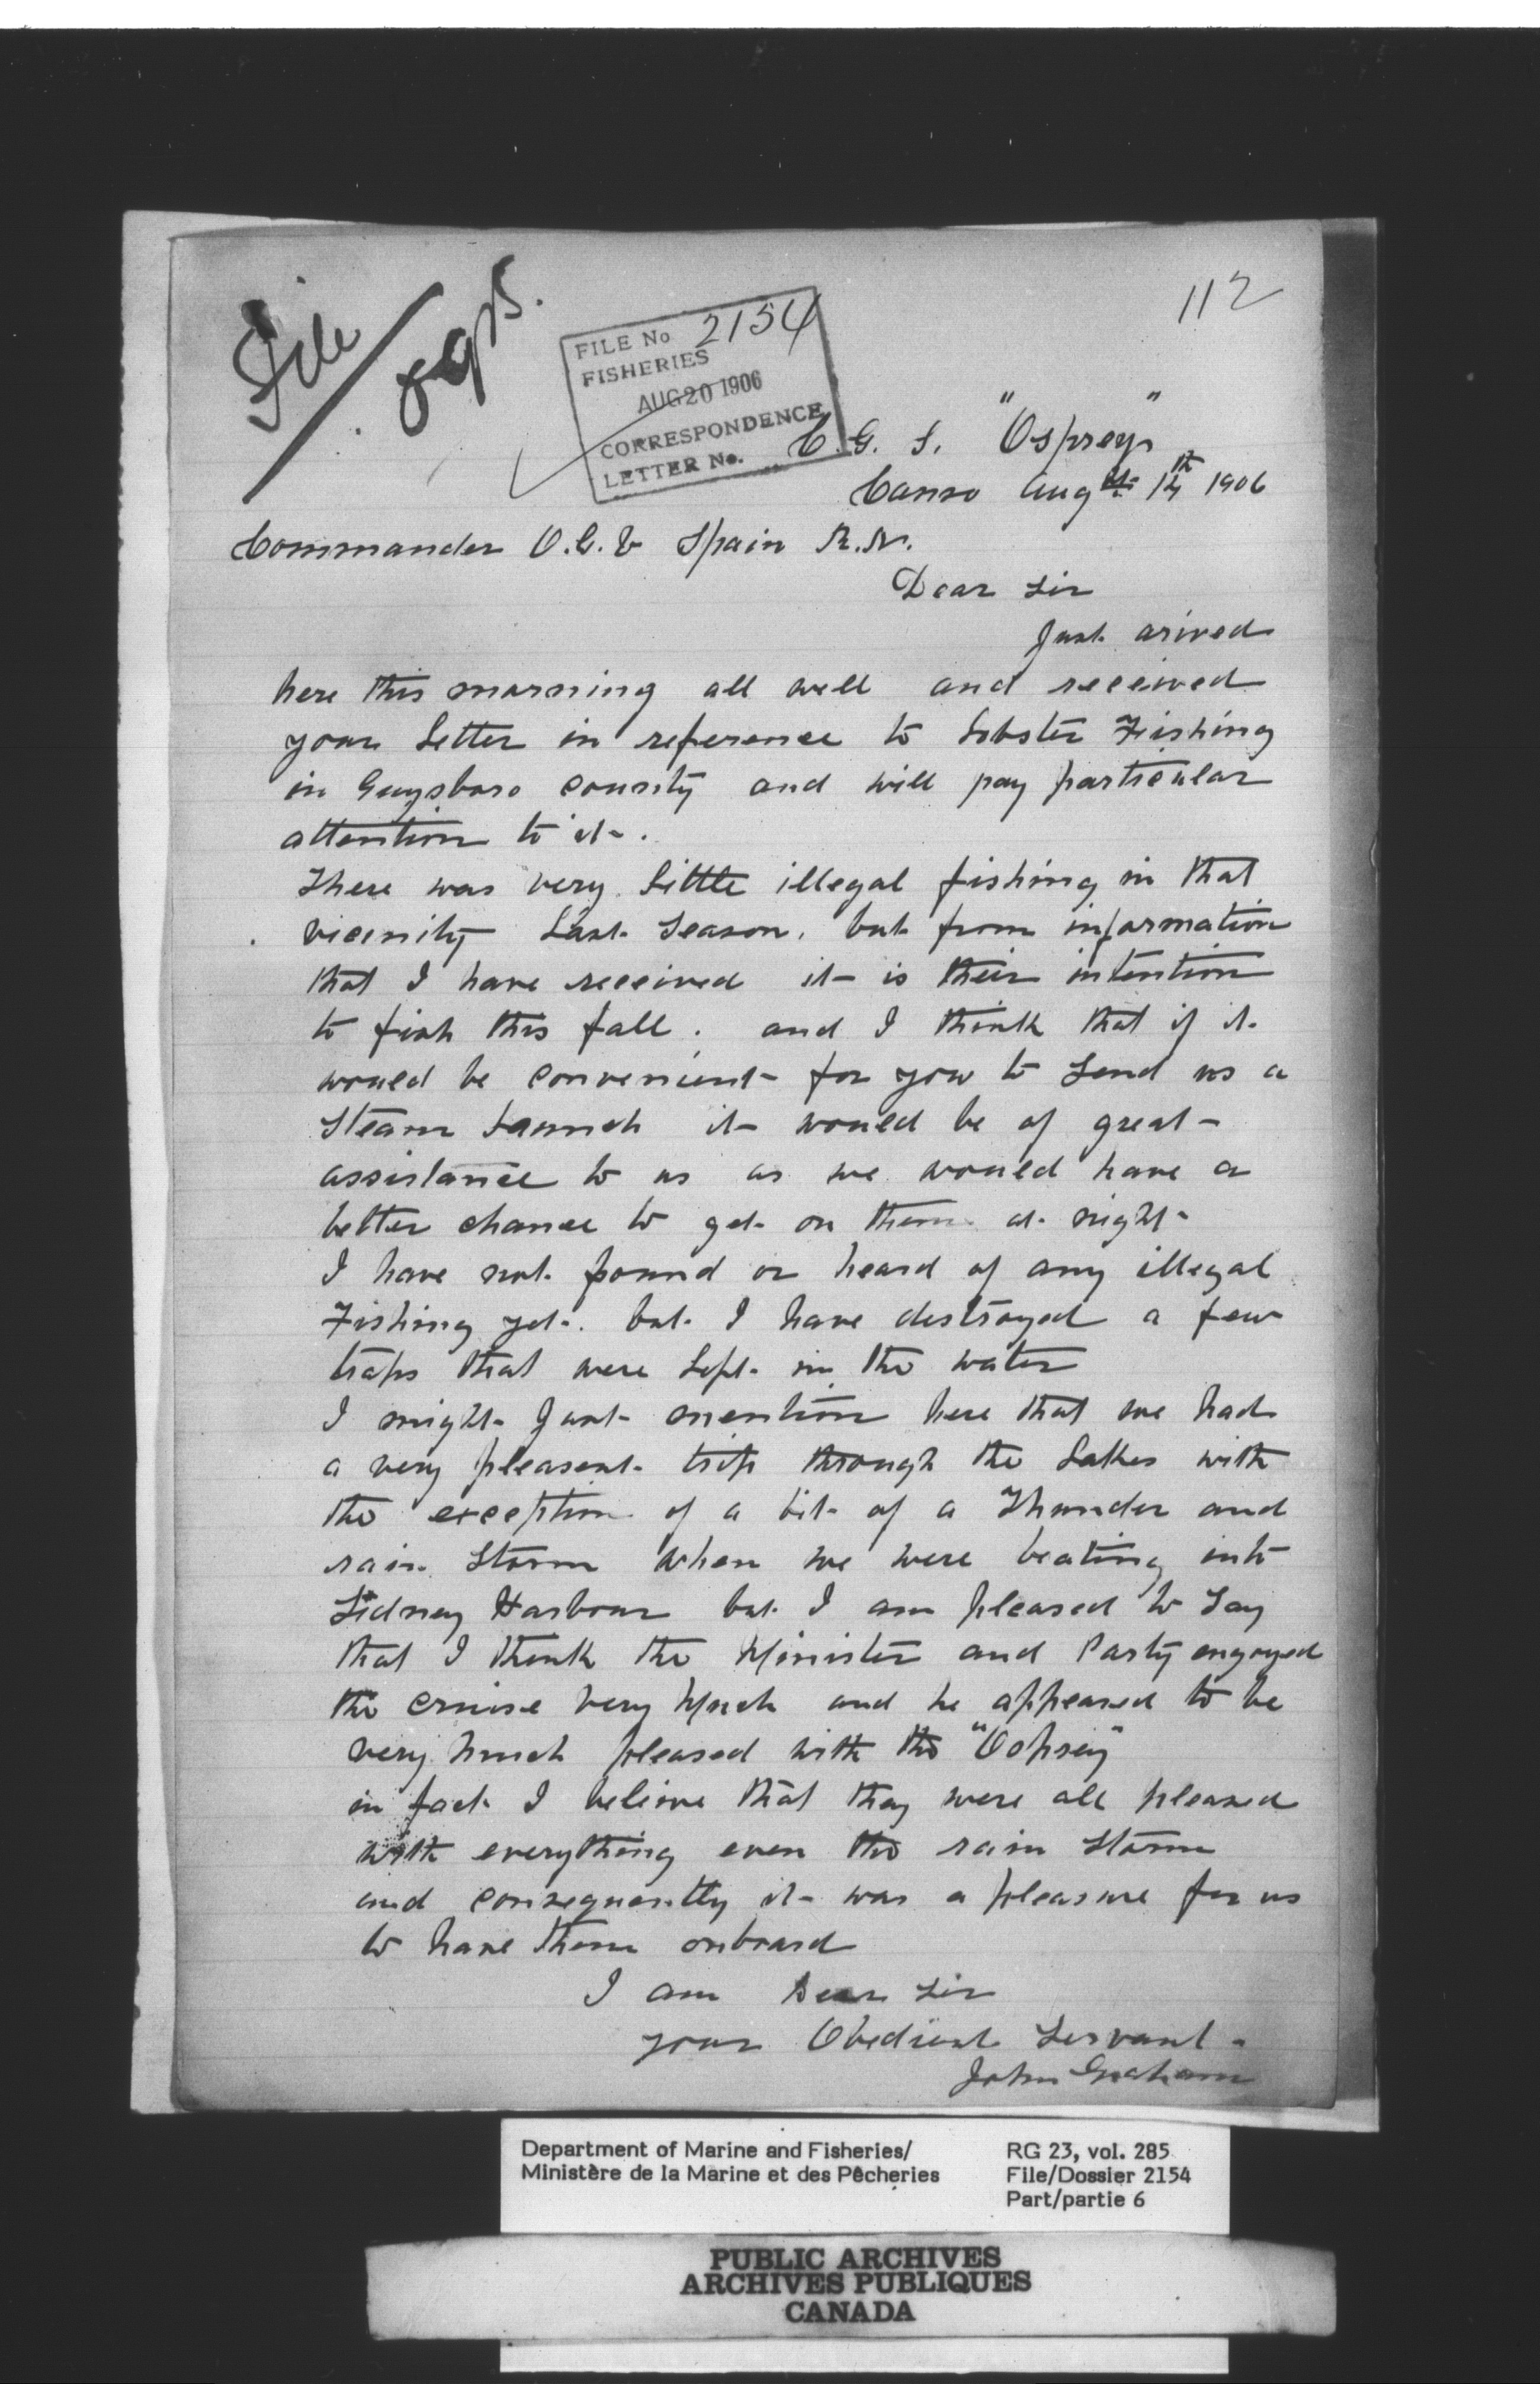 File
112
FILE No 2154
FISHERIES
AUG 20 1906
CORRESPONDENCE
LETTER No.
C. G. S. "Osprey"
Canso Aug 14th 1906
Commander O.G.V Spain R.N.
Dear Sir
Just arived
here this morning all well and received
your Letter in reference to Lobster Fishing
in Guysboro county and will pay particular
attention to it.
There was very Little illegal fishing in that
vicinity Last Season, but from information
that I have received it is their intention
to fish this fall. and I think that if it
would be convenient for you to Send us a
Steam Launch it would be of great
assistance to us as we would have a
better chance to get on them at night
I have not found or heard of any illegal
Fishing yet. but I have destroyed a few
traps that were Left in the water
I might Just mention here that we had
a very pleasent trip through the Lakes with
the exception of a bit of a Thunder and
rain Storm when we were beating into
Sidney Harbour but I am pleased to Say
that I think the Minister and Party engoyed
the cruise very Much and he appeared to be
very much pleased with the "Osprey"
in fact I believe that they were all pleased
with everything even the rain Storm
and consequently it was a pleasure for us
to have them onboard
I am Dear Sir
your Obedient Servant
John Graham
Department of Marine and Fisheries/
Ministère de la Marine et des Pêcheries
RG 23, vol. 285
File/Dossier 2154
Part/partie 6
PUBLIC ARCHIVES
ARCHIVES PUBLIQUES
CANADA